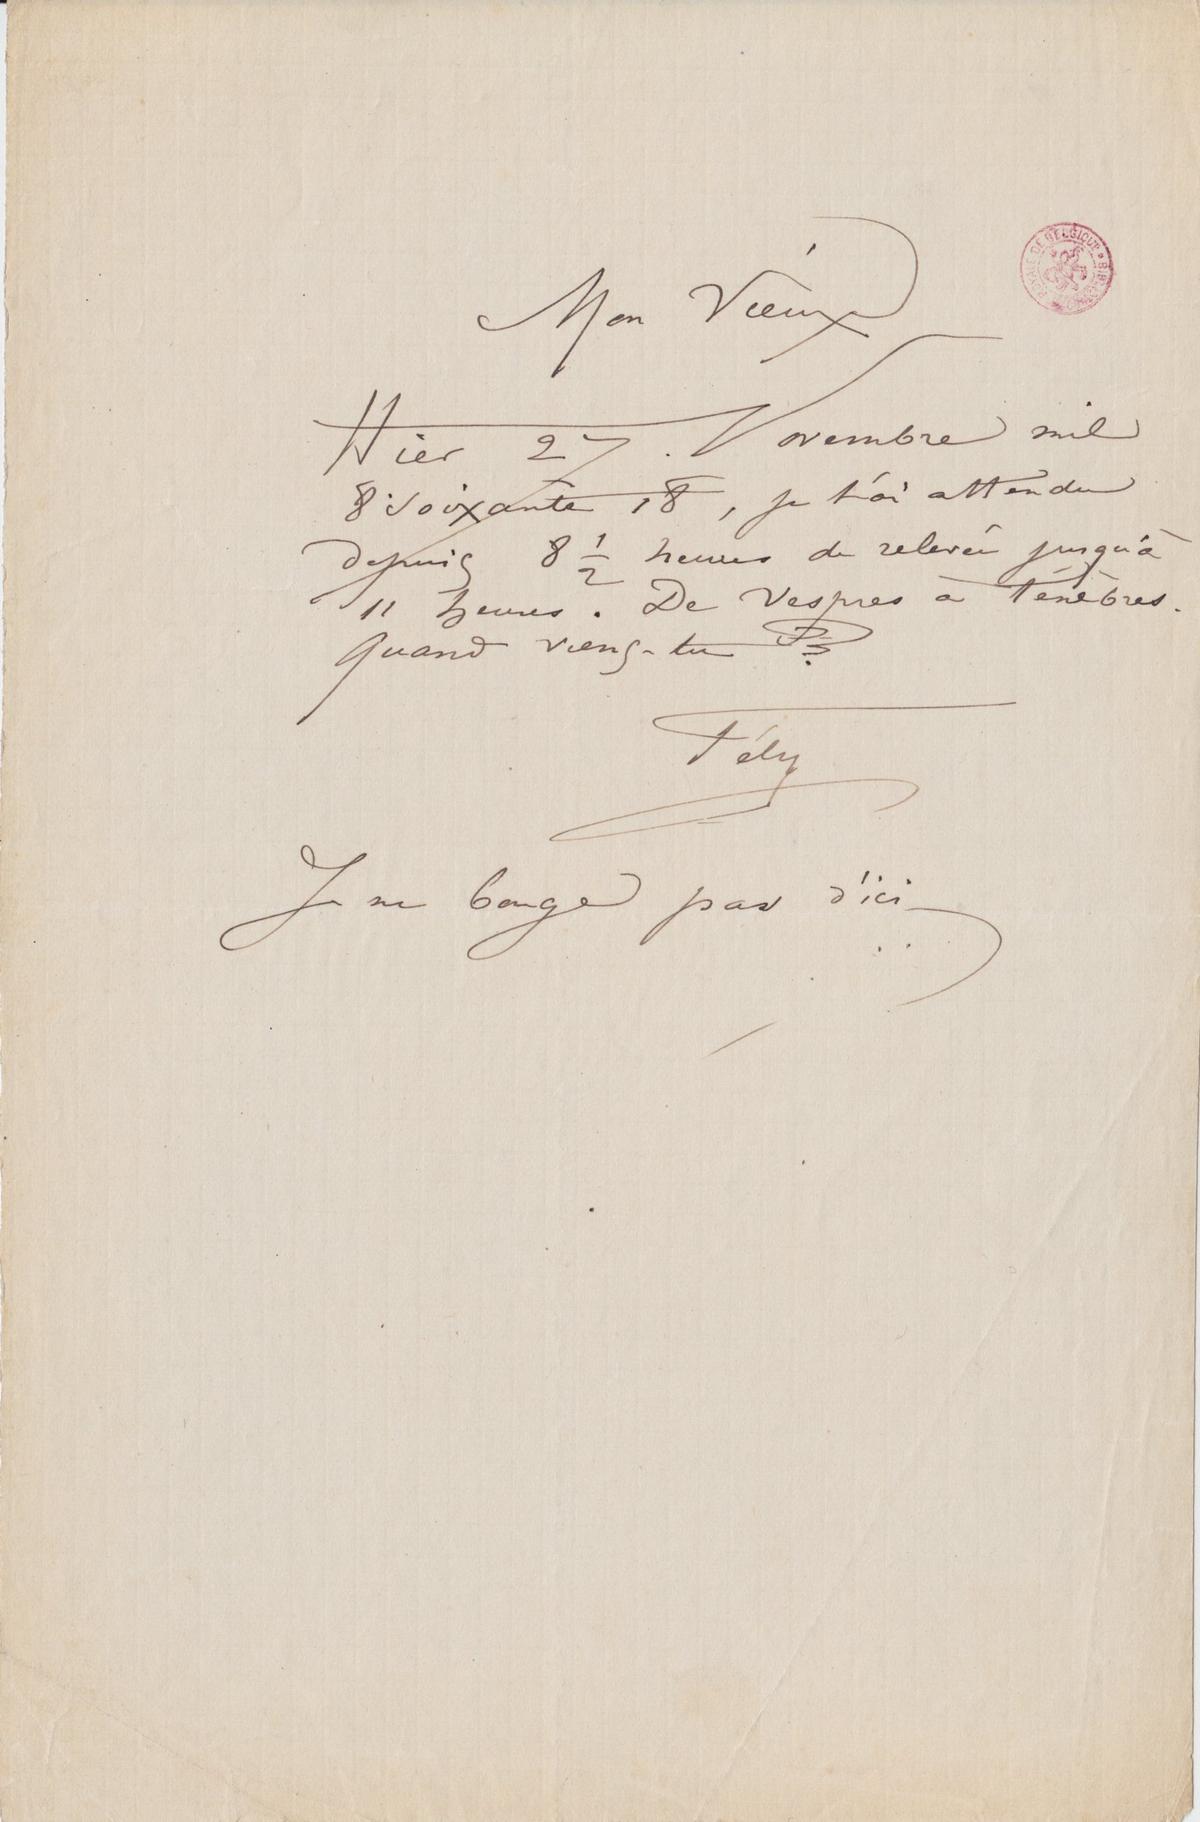 Mon Vieux
Hier 27 Novembre mil
8 soixante 18, je t'ai attendu
depuis 8 1/2 heures de relevée jusqu'à
11 heures. De Vespres à Ténèbres.
Quand viens-tu ??
Fély
Je ne bouge pas d'ici
ROYALE DE BELGIQUE